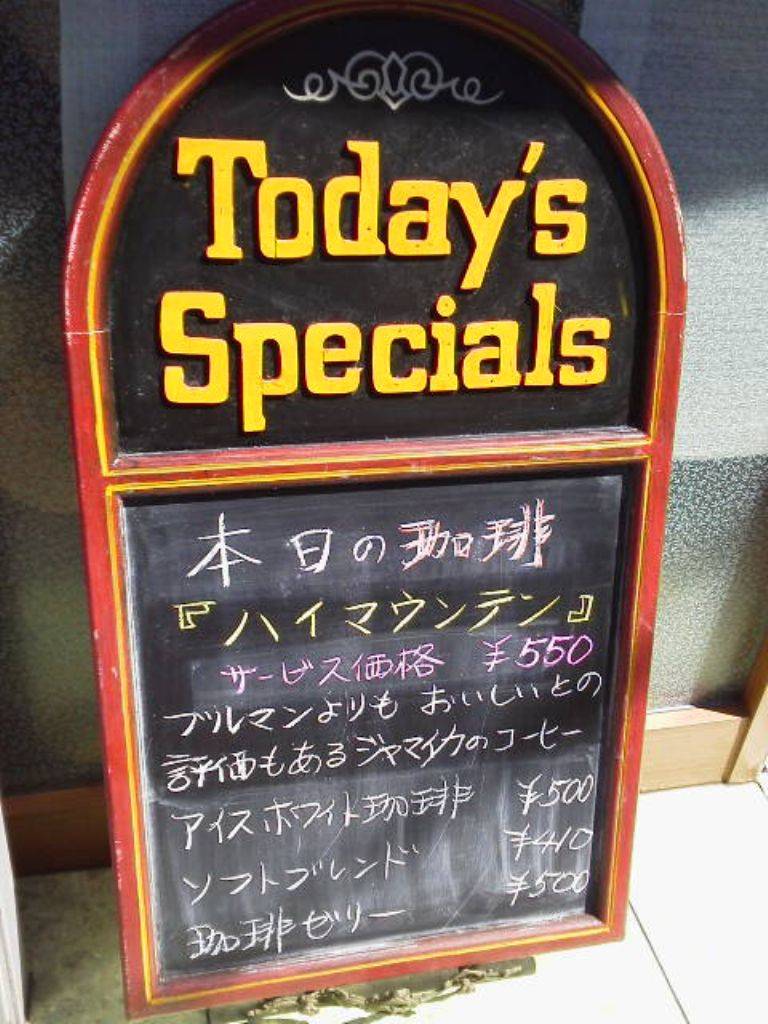 Today's
Specials
本日の珈琲
『ハイマウンテン』
サービス価格 ¥550
ブルマンよりも おいしいとの
評価もあるジャマイカのコーヒー
アイスホワイト珈琲 ¥500
ソフトブレンド ¥410
珈琲ゼリー ¥500